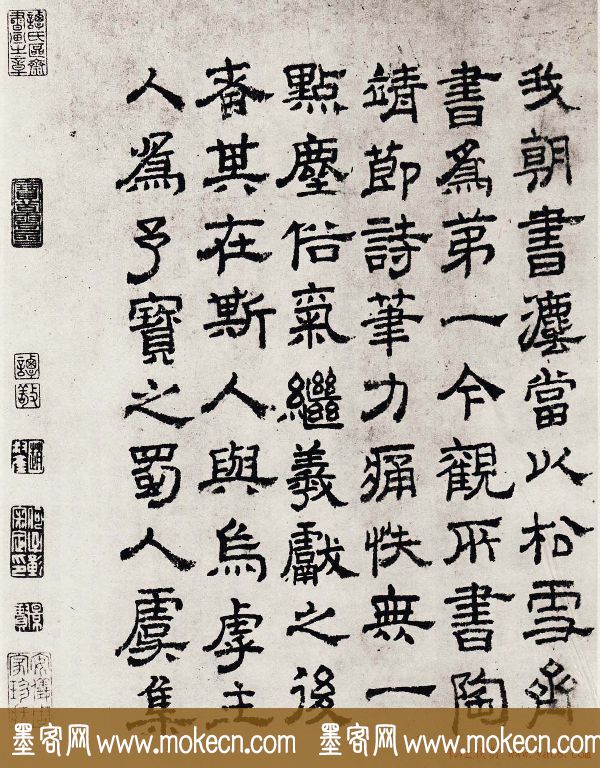 我朝書廛當以松雪齊
書爲弟一今觀所書陶
靖節詩筆力痛快無一
點塵俗氣繼羲獻之後
者其在斯人與烏虖主
人爲予寶之蜀人虞集
譚氏區齋
書畫之章
譚敬
墨客网 www.mokecn.com 墨客网 www.mokecn.com